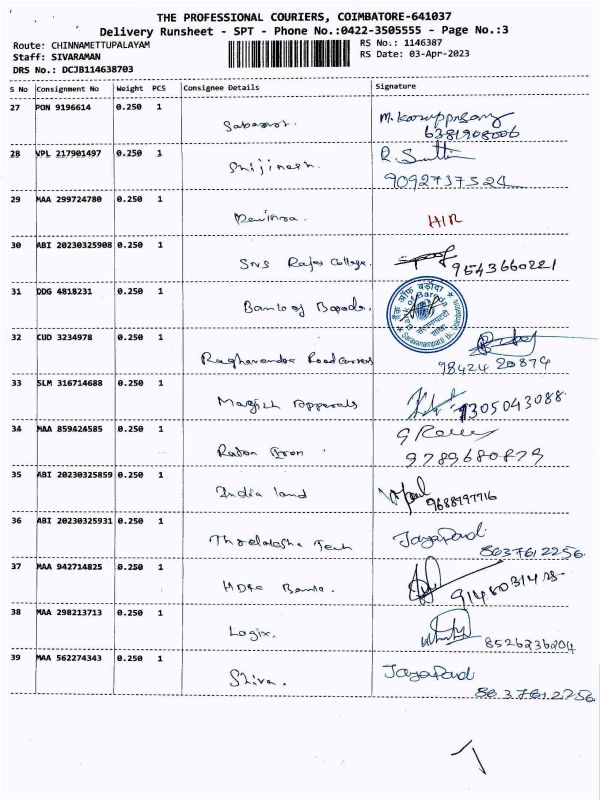 THE PROFESSIONAL COURIERS, COIMBATORE-641037
Delivery Runsheet - SPT - Phone No.:0422-3505555 - Page No.:3
Route: CHINNAMETTUPALAYAM
Staff: SIVARAMAN
DRS No.: DCJB114638703
RS No.: 1146387
RS Date: 03-Apr-2023
S No Consignment No Weight PCS Consignee Details Signature
27 PON 9196614 0.250 1
6381908006
28 VPL 217901497 0.250 1
Shijinesh.
9092737524
29 MAA 299724780 0.250 1
30 ABI 20230325908 0.250 1
SNS Rajas College. 9543660221
31 DDG 4818231 0.250 1
Bank of Baroda.
बैंक ऑफ़ बड़ौदा
Bank of Baroda
32 CUD 3234978 0.250 1
Raghavendra
98424 20874
33 SLM 316714688 0.250 1
Apparals 9305043088
34 MAA 859424585 0.250 1
9789680879
35 ABI 20230325859 0.250 1
India land 9688197716
36 ABI 20230325931 0.250 1
Tech
8637612256
37 MAA 942714825 0.250 1
HDFC Bank.
38 MAA 298213713 0.250 1
Logix. 8526236204
39 MAA 562274343 0.250 1
Shiva.
8637612256